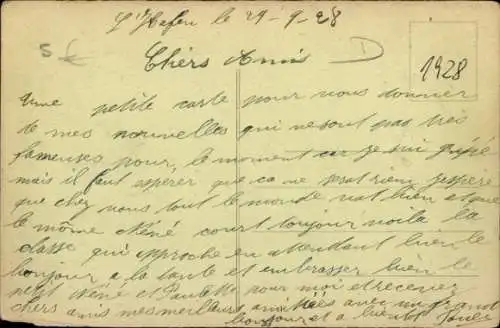 le 29-9-28
Chers Amis
1928
Une petite carte pour vous donner
de mes nouvelles qui ne sont pas très
fameuses pour le moment car je suis grippé
mais il faut espérer que ca ne serat rien jespère
que chez vous tout le monde vat bien et que
le môme Néné court toujour voila la
classe qui approche en attendant bien le
bonjour a la tante et embrasser bien le
petit Néné et Paulette pour moi et recever
chers amis mes meilleurs amitiés avec un grand
bonjour et a bientot